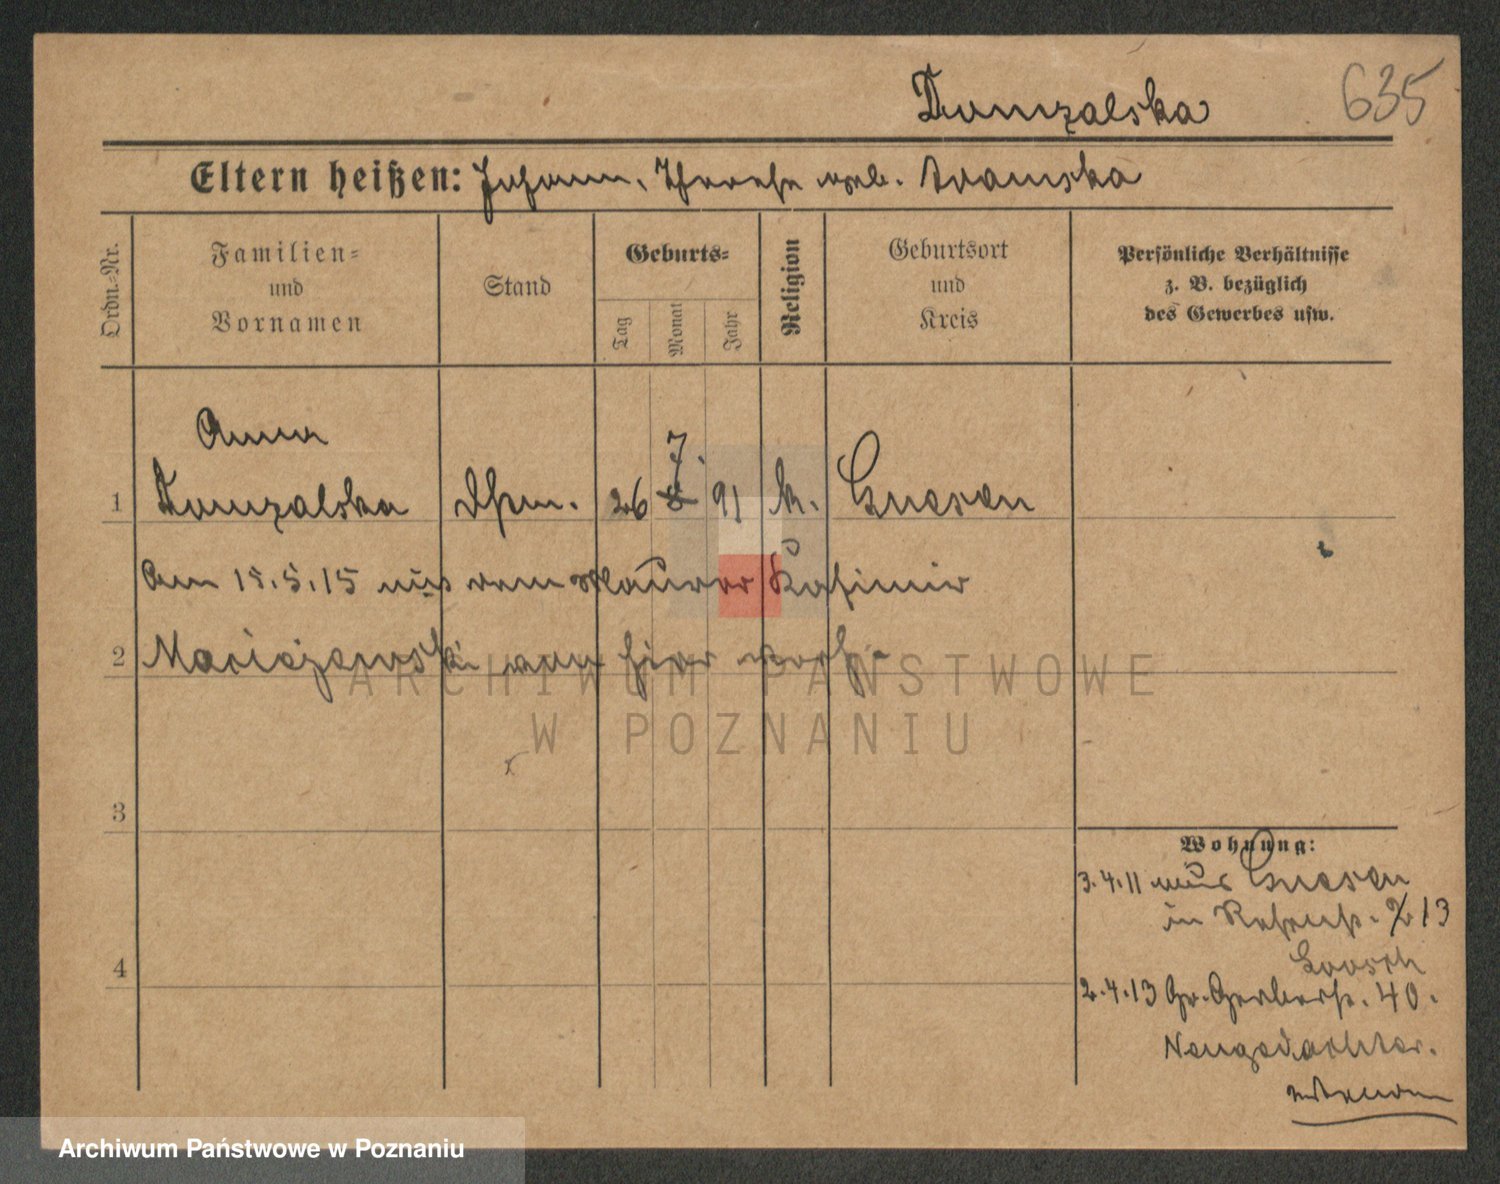 Domzalska 635
Eltern heißen: Johann, Therese geb. Adamska
Ordn.-Nr.
Familien-
und
Vornamen
Stand
Geburts-
Tag
Monat
Jahr
Religion
Geburtsort
und
Kreis
Persönliche Verhältnisse
z. B. bezüglich
des Gewerbes usw.
Anna
1 Domzalska 26 7. 8 91 k. Gnesen
Am 15.5.15 mit dem Maurer Kasimir
2 Maciejewski von hier verh.
3
4
Wohnung:
3.4.11 aus Gnesen
in 2 13
2.4.13 Gr. Gerberstr. 40.
ARCHIWUM PAŃSTWOWE
W POZNANIU
Archiwum Państwowe w Poznaniu